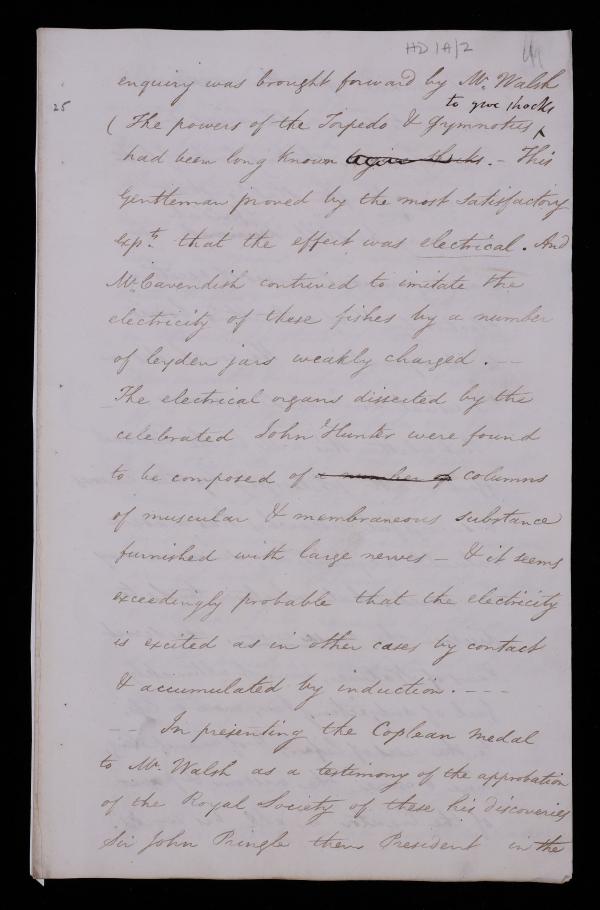 HD/1A/2
enquiry was brought forward by Mr. Walsh
25
to give shocks
( The powers of the Torpedo & Gymnotus ^
had been long known to give shocks. – This
Gentleman proved by the most satisfactory
expts. that the effect was electrical. And
Mr. Cavendish contrived to imitate the
electricity of these fishes by a number
of leyden jars weakly charged. –
The electrical organs dissected by the
celebrated John Hunter were found
to be composed of a number of columns
of muscular & membraneous substance
furnished with large nerves – & it seems
exceedingly probable that the electricity
is excited as in other cases by contact
& accumulated by induction. - - -
– – In presenting the Coplean medal
to Mr. Walsh as a testimony of the approbation
of the Royal Society of these his discoveries
Sir John Pringle then President in the